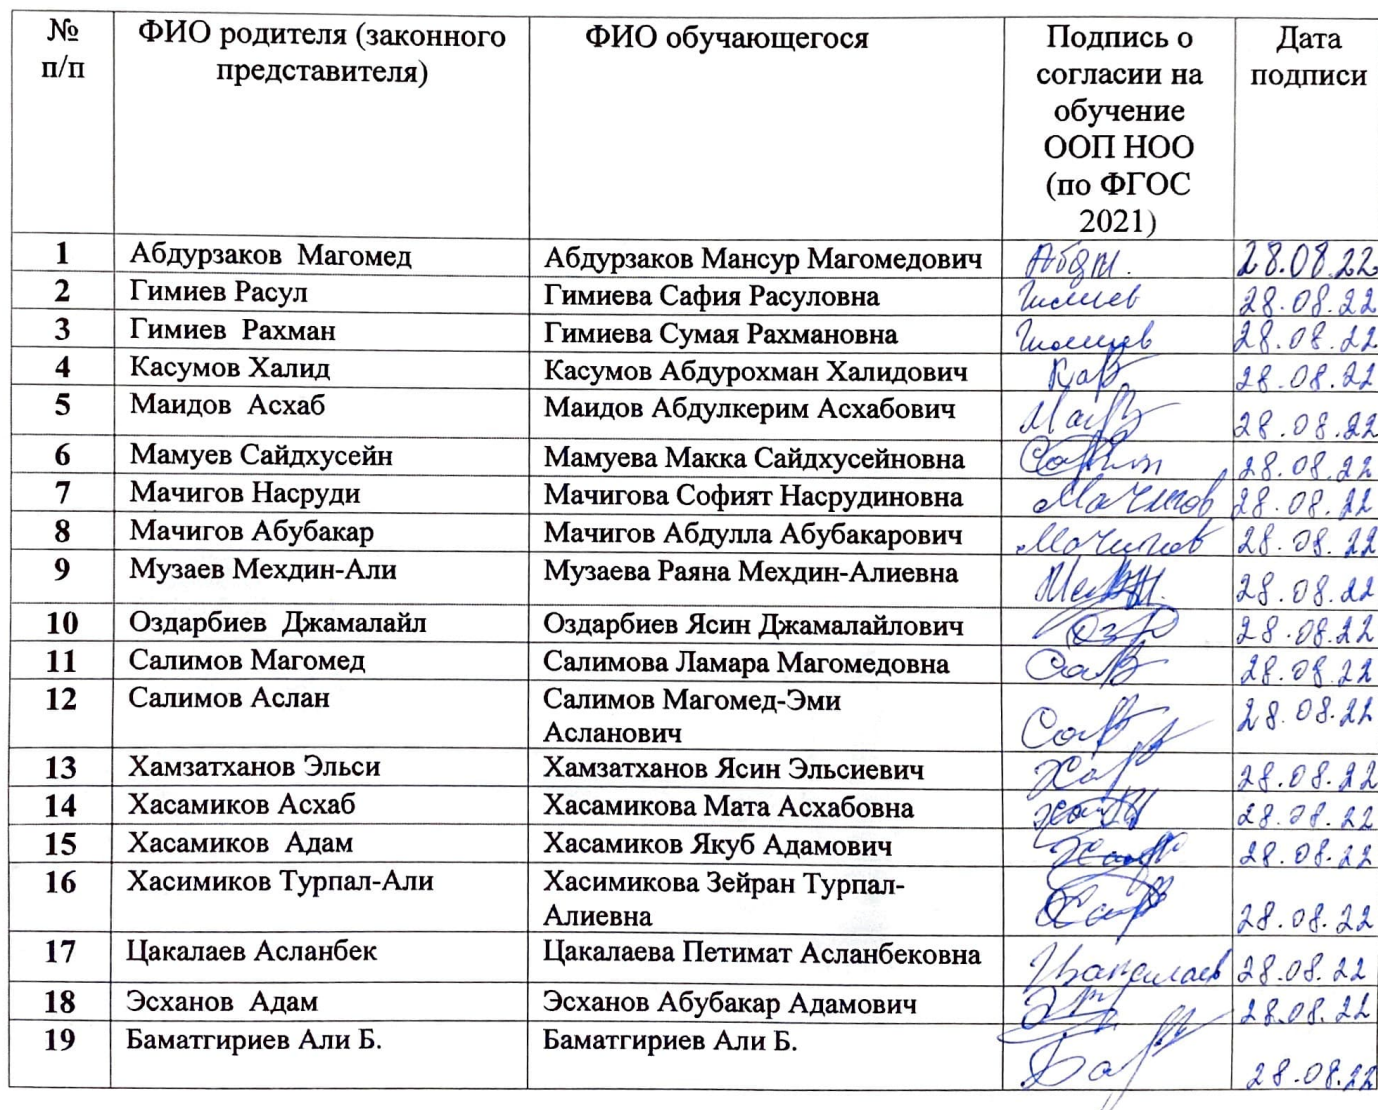 № п/п ФИО родителя (законного представителя) ФИО обучающегося Подпись о согласии на обучение ООП НОО (по ФГОС 2021) Дата подписи
1 Абдурзаков Магомед Абдурзаков Мансур Магомедович 28.08.22
2 Гимиев Расул Гимиева Сафия Расуловна Гимиев 28.08.22
3 Гимиев Рахман Гимиева Сумая Рахмановна Гимиев 28.08.22
4 Касумов Халид Касумов Абдурохман Халидович 28.08.22
5 Маидов Асхаб Маидов Абдулкерим Асхабович 28.08.22
6 Мамуев Сайдхусейн Мамуева Макка Сайдхусейновна 28.08.22
7 Мачигов Насруди Мачигова Софият Насрудиновна Мачигов 28.08.22
8 Мачигов Абубакар Мачигов Абдулла Абубакарович Мачигов 28.08.22
9 Музаев Мехдин-Али Музаева Раяна Мехдин-Алиевна 28.08.22
10 Оздарбиев Джамалайл Оздарбиев Ясин Джамалайлович 28.08.22
11 Салимов Магомед Салимова Ламара Магомедовна 28.08.22
12 Салимов Аслан Салимов Магомед-Эми Асланович 28.08.22
13 Хамзатханов Эльси Хамзатханов Ясин Эльсиевич 28.08.22
14 Хасамиков Асхаб Хасамикова Мата Асхабовна 28.08.22
15 Хасамиков Адам Хасамиков Якуб Адамович 28.08.22
16 Хасимиков Турпал-Али Хасимикова Зейран Турпал-Алиевна 28.08.22
17 Цакалаев Асланбек Цакалаева Петимат Асланбековна Цакалаев 28.08.22
18 Эсханов Адам Эсханов Абубакар Адамович 28.08.22
19 Баматгириев Али Б. Баматгириев Али Б. 28.08.22